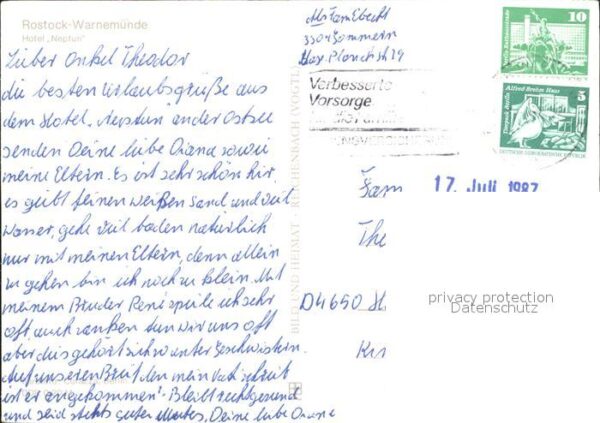 Rostock-Warnemünde
Hotel „Neptun"
Lieber Onkel Theodor
die besten Urlaubsgrüße aus
dem Hotel Neptun an der Ostsee
senden Deine liebe Diana sowie
meine Eltern. Es ist sehr schön hir,
es geibt feinen weißen Sand und viel
Wasser, gehe viel baden natürlich
nur mit meinen Eltern, denn allein
zu gehen bin ich noch zu klein. Mit
meinem Bruder Reni spiele ich sehr
oft, auch zanken tun wir uns oft
aber dis gehört sich so unter Geschwistern.
Auf unseren Brief den mein Vati schreib
ist er angekommen? Bleibt recht gesund
und seid stehts guten Mutes, Deine liebe Diana
BILD UND HEIMAT REICHENBACH (VOGTL)
Abs. Fam. Ebecht
3304 Gommern
Max-Planck-Str. 24
Verbesserte
Vorsorge
10
5
Alfred Brehm Haus
Tierpark Berlin
DEUTSCHE DEMOKRATISCHE REPUBLIK
17. Juli 1987
Fam
The
D 4650
privacy protection
Datenschutz